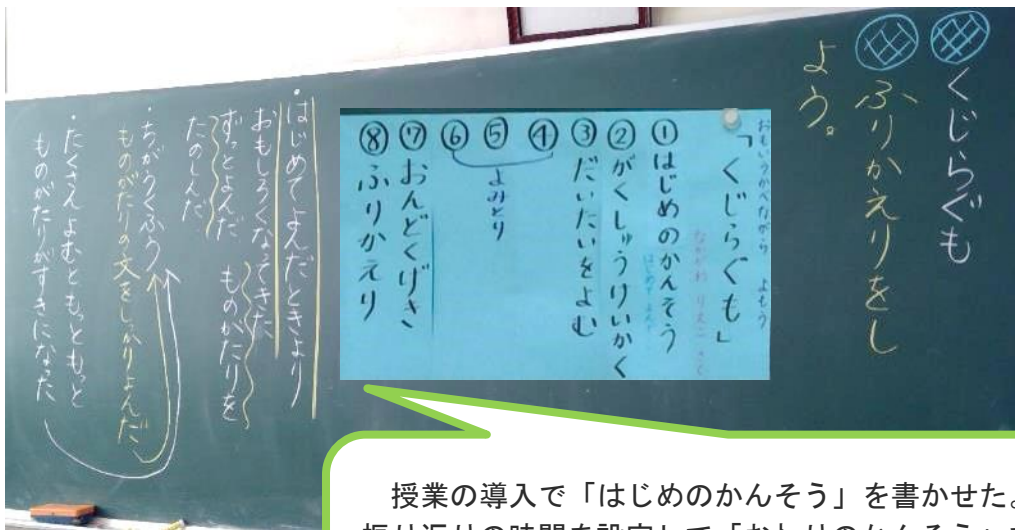 くじらぐも
ふりかえりをし
よう。
おもいうかべながら よもう
「くじらぐも」
なかがわ りえこ さく
①はじめのかんそう
はじめて よんで
②がくしゅうけいかく
③だいたいをよむ
④
⑤よみとり
⑥
⑦おんどくげき
⑧ふりかえり
・はじめてよんだときより
おもしろくなってきた
ずっとよんだ ものがたりを
たのしんだ
・ちがうくふう
ものがたりの文をしっかりよんだ
・たくさんよむともっともっと
ものがたりがすきになった
授業の導入で「はじめのかんそう」を書かせた。